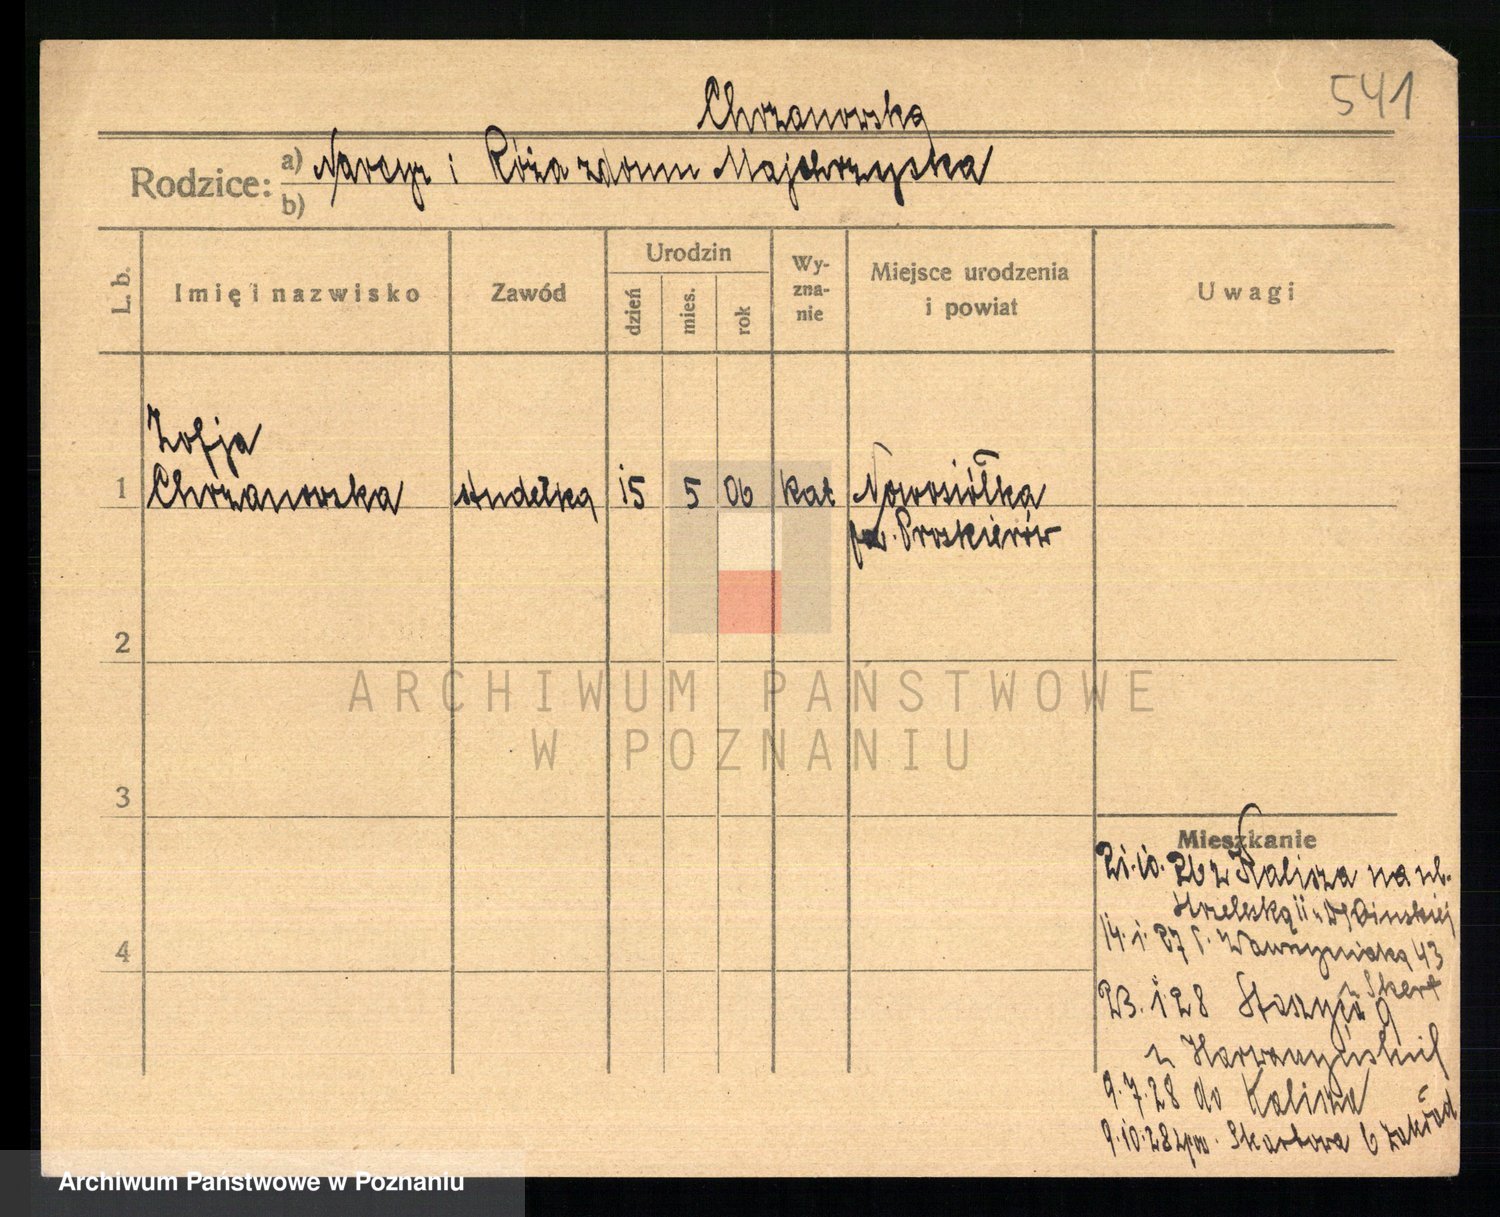 541
Chrzanowska
Rodzice: a) Narcyz i Róża z domu Majchrzycka
b)
L. b.
Imię i nazwisko
Zawód
Urodzin
dzień
mies.
rok
Wy-
zna-
nie
Miejsce urodzenia
i powiat
Uwagi
Zofja
1 Chrzanowska studetka 15 5 06 kat Nowosiółka
pow. Proskierów
2
ARCHIWUM PAŃSTWOWE
W POZNANIU
3
4
Mieszkanie
21.10.26 z Kalisza na ul.
Strzelecką 11 u
14.1.27 Wawrzyniaka 43
u Skert
23.1.28 Staszyca 9
u
9.7.28 do Kalisza
9.10.28 Skarbowa 6 zakład
Archiwum Państwowe w Poznaniu